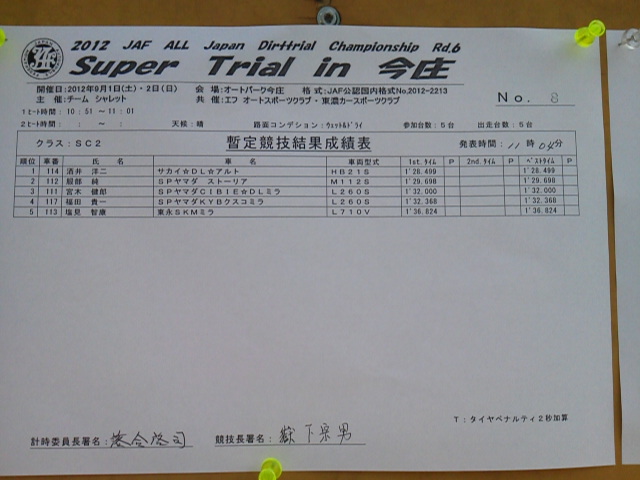 2012 JAF ALL Japan Dirttrial Championship Rd.6
Super Trial in 今庄
開催日:2012年9月1日(土)・2日(日) 会 場:オートパーク今庄 格 式:JAF公認国内格式No,2012-2213
主 催:チーム シャレット 共 催:エフ オートスポーツクラブ・東濃カースポーツクラブ No. 8
1ヒート時間: 10:51 ~ 11:01
2ヒート時間: : ~ : 天候:晴 路面コンデション:ウェット&ドライ 参加台数:5台 出走台数:5台
クラス:SC2 暫定競技結果成績表 発表時間: 11 時 04 分
順位 車番 氏 名 車 名 車両型式 1st.タイム P 2nd.タイム P ベストタイム P
1 114 酒井 洋二 サカイ☆DL☆アルト HB21S 1'28.499 1'28.499
2 112 服部 純 SPヤマダ ストーリア M112S 1'29.698 1'29.698
3 111 宮木 健郎 SPヤマダCIBIE☆DLミラ L260S 1'32.000 1'32.000
4 117 福田 貴一 SPヤマダKYBクスコミラ L260S 1'32.368 1'32.368
5 113 塩見 智康 東永SKMミラ L710V 1'36.824 1'36.824
T:タイヤペナルティ2秒加算
計時委員長署名: 競技長署名: